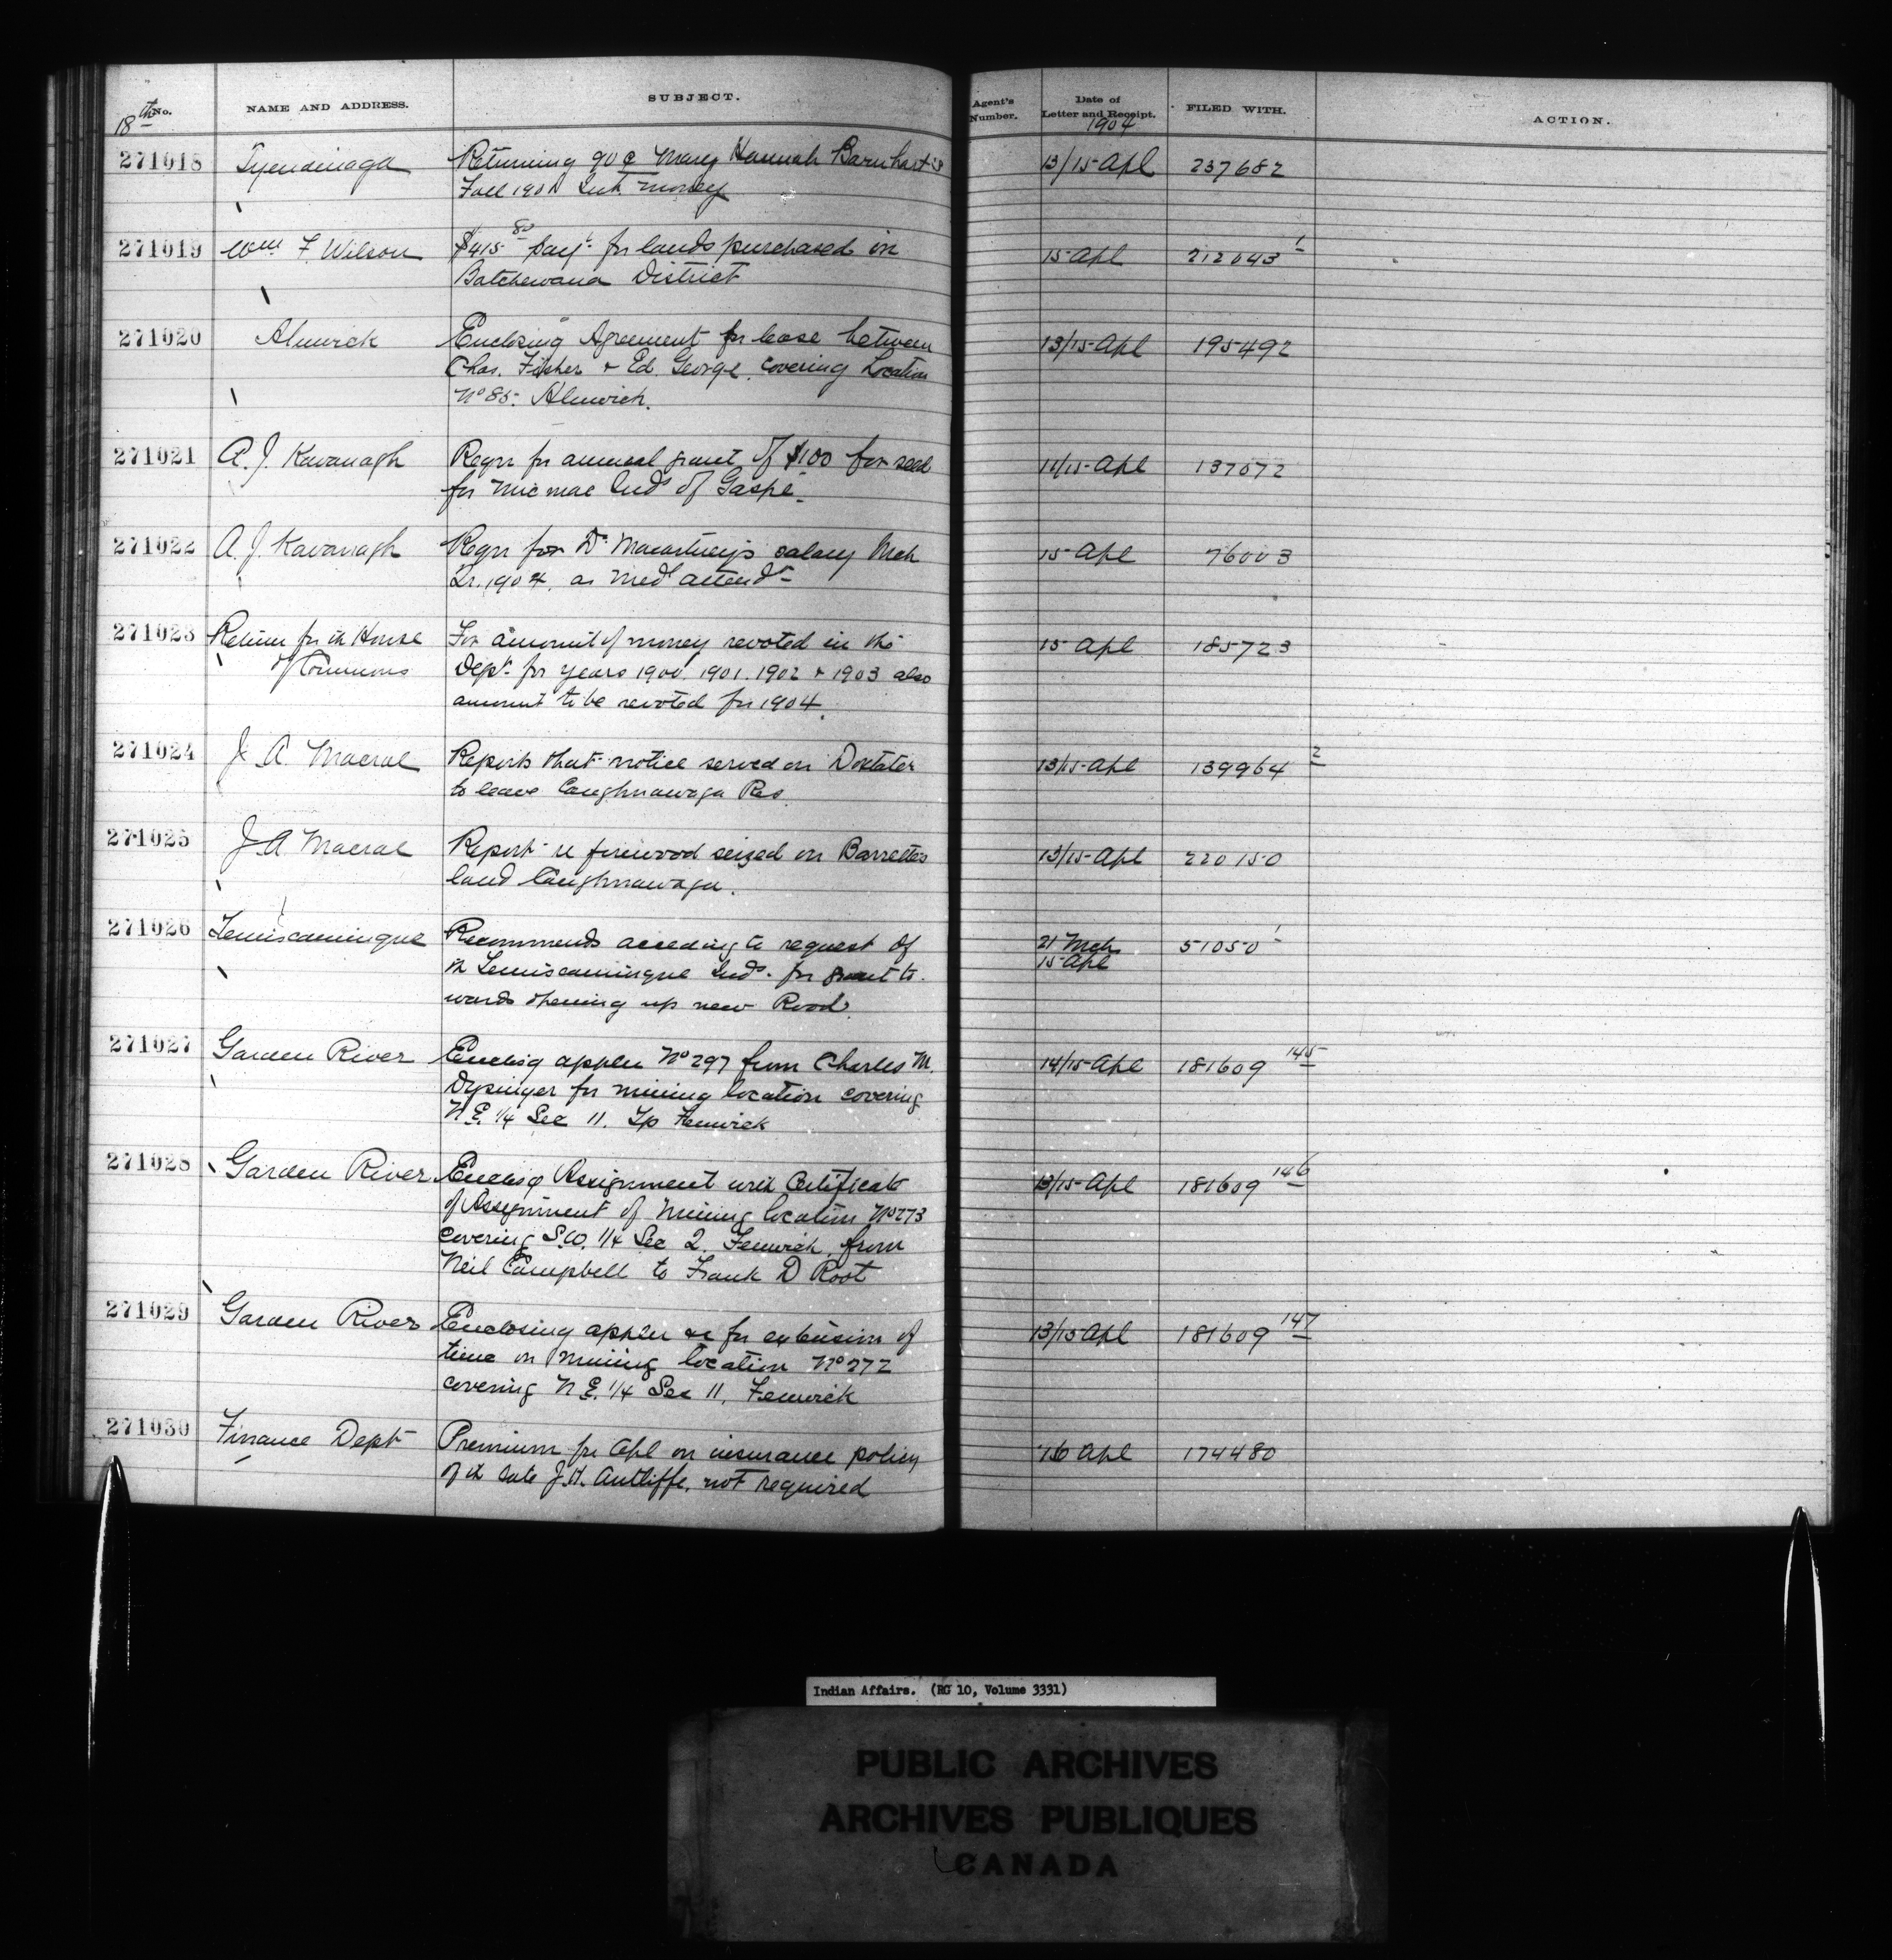 18th No.
NAME AND ADDRESS.
SUBJECT.
Agent's Number.
Date of Letter and Receipt.
1904
FILED WITH.
ACTION.
271018 Tyendinaga Returning 90¢ Mary Hannah Barnhart's 13/15 Apl 237682
Fall 1901 Int. money
271019 Wm. F Wilson $415.80 payt. for lands purchased in 15 Apl 212043 1
Batchewana District
271020 Alnwick Enclosing Agreement for lease between 13/15 Apl 195492
Chas. Fisher + Ed. George, covering Location
No 85. Alnwick.
271021 A. J. Kavanagh Reqn for annual grant of $100 for seed 11/15 Apl 137072
for Micmac Inds of Gaspé.
271022 A. J. Kavanagh Reqn for Dr Macartney's salary Mch 15 Apl 76003
Qr. 1904, as Med attendt
271023 Return for th House For amount of money revoted in the 15 Apl 185723
of Commons Dept for years 1900. 1901. 1902 + 1903 also
amount to be revoted for 1904.
271024 J. A. Macrae Reports that notice served on Doxtater 13/15 Apl 139964 2
to leave Caughnawaga Res.
271025 J. A. Macrae Report re firewood seized on Barrette's 13/15 Apl 220150
land Caughnawaga.
271026 Temiscamingue Recommends acceding to request of 21 Mch 51050 1
15 Apl
th Temiscamingue Inds. for grant to-
wards opening up new Road.
271027 Garden River Enclosg appln No 297 from Charles M. 14/15 Apl 181609 145
for mining location covering
N.E. 1/4 Sec 11. Tp Fenwick
271028 Garden River Enclosg Assignment with Certificate 13/15 Apl 181609 146
of Assignment of Mining location No 273
covering S.W. 1/4 Sec 2. Fenwick, from
Neil Campbell to Frank D Root
271029 Garden River Enclosing appln &c for extension of 13/15 Apl 181609 147
time on Mining location No 272
covering N.E. 1/4 Sec 11, Fenwick
271030 Finance Dept Premium for Apl on insurance policy 16 Apl 174480
of th late J. H. Antliffe, not required
Indian Affairs. (RG 10, Volume 3331)
PUBLIC ARCHIVES
ARCHIVES PUBLIQUES
CANADA